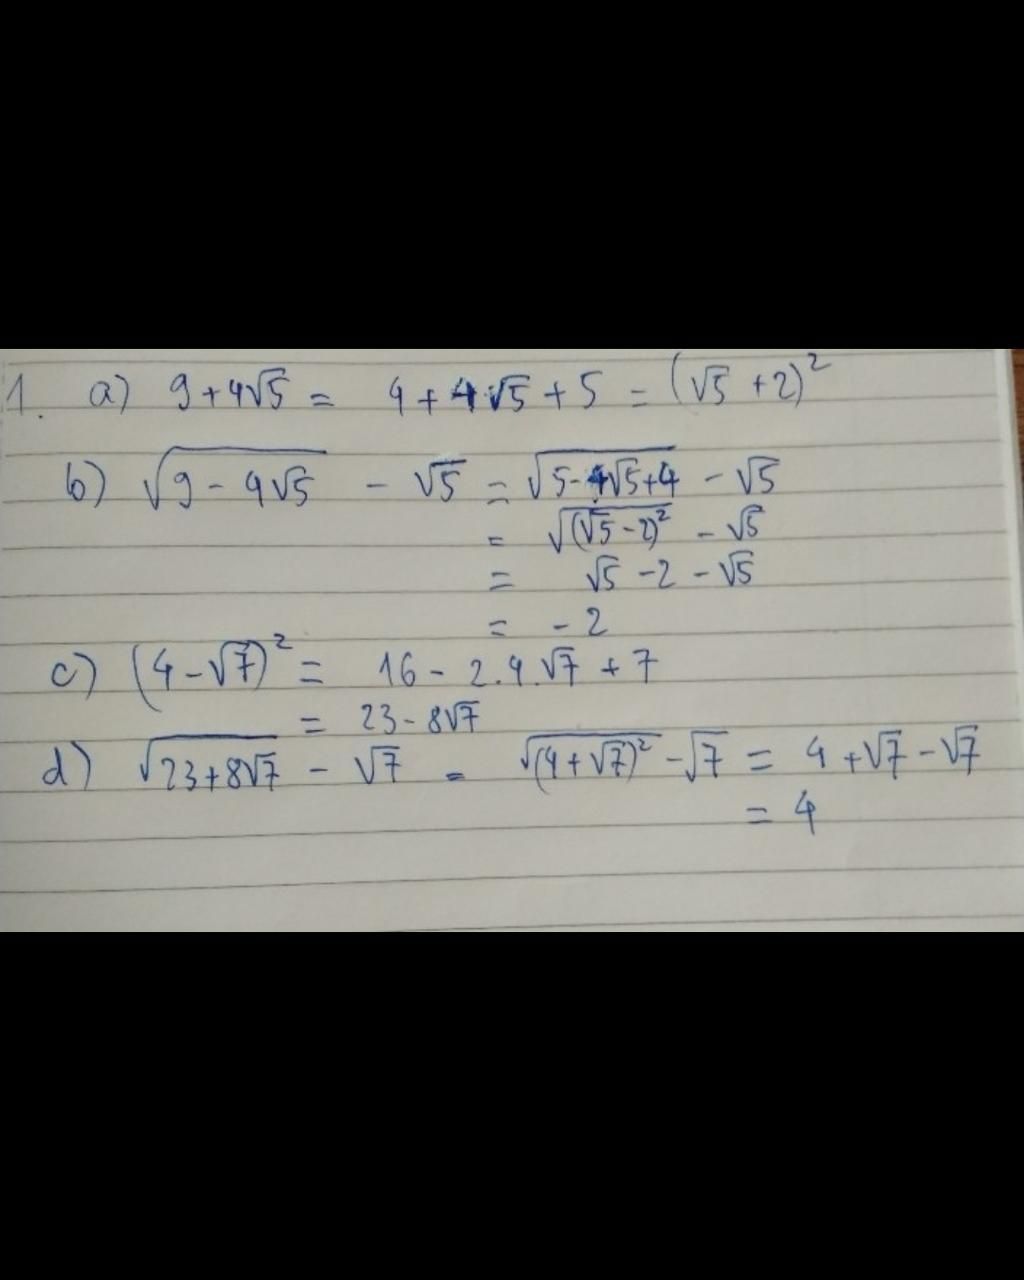 1. a) 9 + 4√5 = 4 + 4√5 + 5 = (√5 + 2)²
b) √(9 - 4√5) - √5 = √(5 - 4√5 + 4) - √5
= √((√5 - 2)²) - √5
= √5 - 2 - √5
= - 2
c) (4 - √7)² = 16 - 2.4.√7 + 7
= 23 - 8√7
d) √(23 + 8√7) - √7 = √((4 + √7)²) - √7 = 4 + √7 - √7
= 4